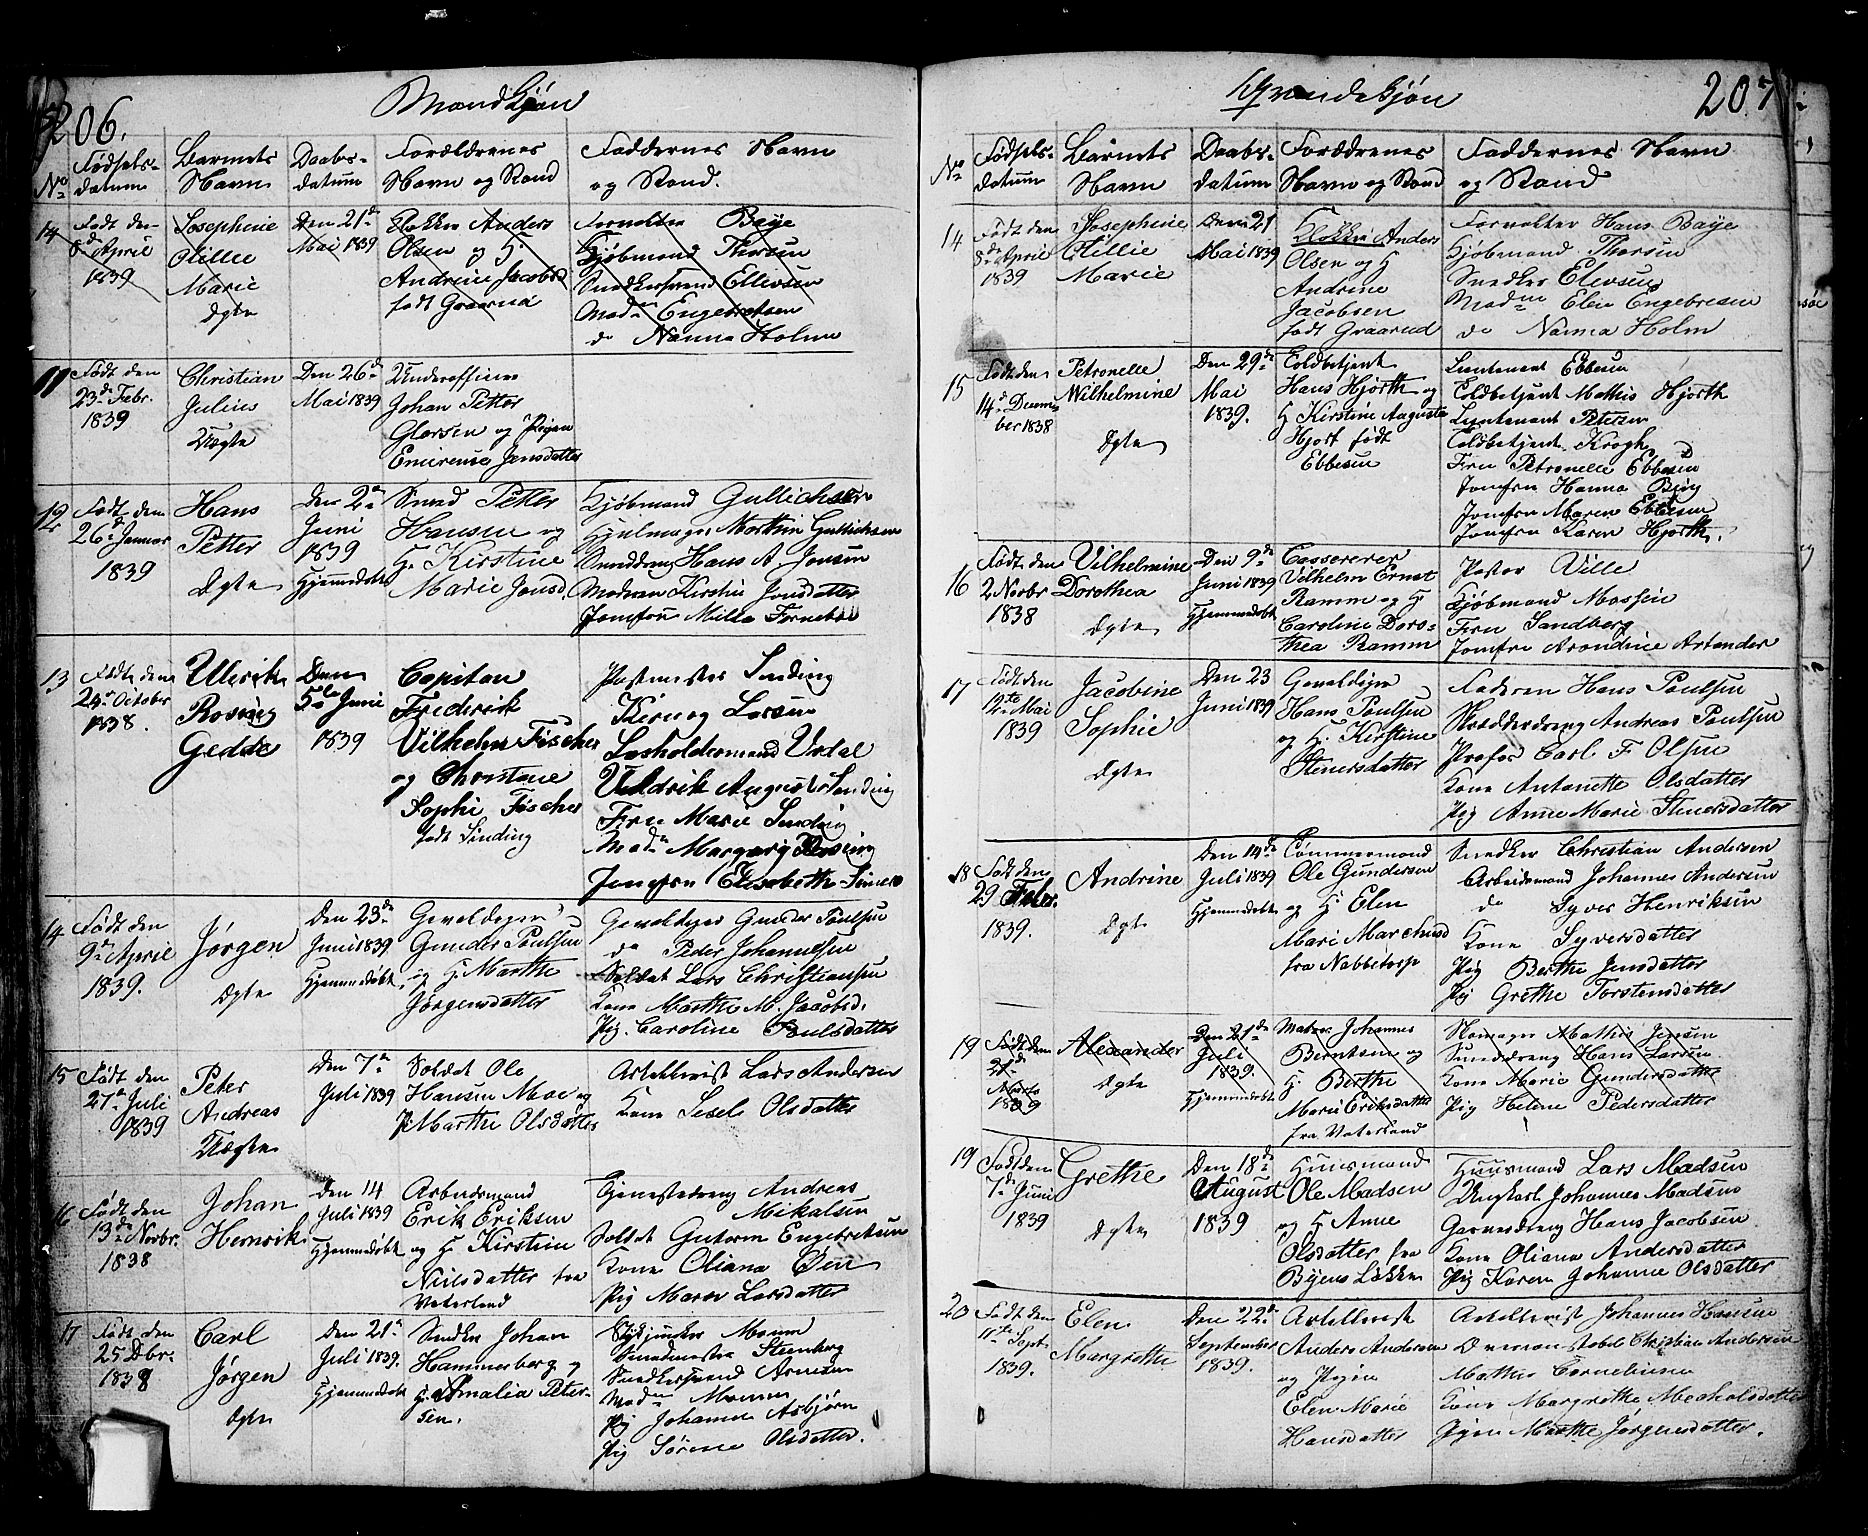 206.
Mandkjøn
No
Fødsels-
datum
Barnets
Navn
Daabs-
datum
Forældrenes
Navn og Stand
Faddernes Navn
og Stand.
14
Født den
8de April
1839
Josephine
Otillie
Marie
Ægte
Den 21de
Mai 1839
Klokker Anders
Olsen og H.
Andrine Jacobsd
født Graarud
Forvalter Baye
Kjøbmand Thorsen
Snedkersvend Ellevsen
Madm Engebretsen
do Nanna Holm
11
Født den
23de Febr.
1839
Christian
Julius
Uægte
Den 26de
Mai 1839
Underofficer
Johan Petter
Glørsen og Pigen
Emerense Jensdatter
12
Født den
26de Januar
1839
Hans
Petter
Ægte
Den 2de
Juni
1839
Hjemmedøbt
Smed Petter
Hansen og
H. Kirstine
Marie Jensd.
Kjøbmand Gullichsen
Hjulmager Morthin Gullichsen
Smeddreng Hans A. Jensen
Madmen Kirstin Jensdatter
Jomfru Milda Fornebo
13
Født den
24de October
1838.
Ulerik
Rosving
Gedde
Den
5te Juni
1839
Capitan
Frederik
Vilhelm Fischer
og Christine
Sophi Fischer
født Sinding
Postmester Sinding
Kirurg Larsen
Losholdermand Urdal
Uldrik August Sinding
Fru Marie Sinding
Madm Margreg Rosving
Jomfru Elisabeth Simers
14
Født den
9de April
1839.
Jørgen
Ægte
Den 23de
Juni 1839
Hjemmedøbt
Gevaldiger
Gunder Poulsen
og H. Marthe
Jørgensdatter
Gevaldiger Gunder Poulsen
do Peder Johannesen
Soldat Lars Christiansen
Kone Marthe M. Jacobsd.
Pig. Caroline Poulsdatter
15
Født den
27de Juli
1839
Peter
Andreas
Uægte
Den 7de
Juli 1839
Soldat Ole
Hansen Moe og
P. Marthe Olsdatter
Artellerist Lars Andersen
Kone Sesele Olsdatter
16
Født den
13de Novbr.
1838
Johan
Henrik
Den 14
Juli 1839
Hjemmedøbt
Arbeidsmand
Erik Eriksen
og H. Kirstine
Nielsdatter fra
Vaterland
Tjenestedreng Andreas
Mikalsen
Soldat Gutorm Engebretsen
Kone Oliana Øen
Pig Maren Larsdatter
17
Født den
25 Dbr.
1838
Carl
Jørgen
Ægte
Den 21de
Juli 1839.
Hjemmedøbt
Smeden Johan
Hammerberg og
H. Amalia Peter-
sen.
Steenberg
Snedkersvend Arnesen
Madm
Pig Johanne Asbjørn
Pig Sørene Olsdatter.
Qvindekjøn
207
No
Fødsels-
datum
Barnets
Navn
Daabs-
datum
Forældrenes
Navn og Stand
Faddernes Navn
og Stand
14
Født den
8de April
1839
Josephine
Otillie
Marie
Den 21
Mai 1839
Klokker Anders
Olsen og H
Andrine
Jacobsen
født Graarud
Forvalter Hans Baye
Kjøbmand Thorsen
Snedker Elevsen
Madme Elen Engebresen
do Nanna Holm
15
Født den
14de Decem-
ber 1838
Petronelle
Wilhelmine
Ægte
Den 29de
Mai
1839.
Toldbetjent
Hans Hjorth og
H Kirstine Augusta
Hjort født
Ebbesen
Lieutenant Ebbesen
Toldbetjent Mathis Hjorth
Lieutenant Petersen
Toldbetjent Krogh
Fru Petronelle Ebbesen
Jomfru Hanna Berg
Jomfru Maren Ebbesen
Jomfru Karen Hjorth.
16
Født den
2 Novbr
1838
Vilhelmine
Dorothea
Ægte
Den 9de
Juni 1839
Hjemmedøbt
Cassererer
Vilhelm Ernst
Ramm og H.
Caroline Doro-
thea Ramm
Pastor Ville
Kjøbmand Massen
Fru Sandberg
Jomfru Arondine Artander
17
Født den
12te Mai
1839
Jacobine
Sophie
Ægte
Den 23
Juni 1839
Gevaldiger
Hans Poulsen
og H. Kirstine
Stenersdatter
Faderen Hans Poulsen
Skrædderdreng Andreas Poulsen
Profos Carl F. Olsen
Kone Antonette Olsdatter
Pig Anne Marie Stenersdatter
18
Født den
29 Febr.
1839.
Andrine
Ægte
Den 14de
Juli 1839
Hjemmedøbt
Tømmermand
Ole Gundersen
og H. Elen
Mari Marchusd
fra Nabbetorp
Snedker Christian Andersen
Arbeidsmand Johannes Andersen
do Syver Henriksen
Kone Syversdatter
Pig Berthe Jensdatter
Pig Grethe Torstensdatter
19
Født den
21de
Marts
1839
Alexander
Ægte
Den 21de
Juli
1839.
Hjemmedøbt
Matros Johannes
Berntsen og
H. Berthe
Marie Eriksdatter
fra Vaterland
Skomager Mathis Jensen
Smeddreng Hans Larsen
Kone Marie Gundersdatter
Pig Helene Pedersdatter
19
Født den
7de Juni
1839
Grethe
Ægte
Den 18de
August
1839
Huusmand
Ole Madsen
og H Anne
Olsdatter fra
Byens Løkken
Huusmand Lars Madsen
Ungkarl Johannes Madsen
Garverdreng Hans Jacobsen
Kone Oliana Andersdatter
Pig Karen Johanne Olsdatter
20
Født den
11te Sept.
1839.
Elen
Margrethe
Den 22de
September
1839.
Artellerist
Anders Andersen
og Pigen
Elen Marie
Hansdatter
Artellerist Johannes Hansen
Christian Andersen
Mathis Corneliusen
Kone Margrethe Mecholsdatter
Pigen Marthe Jørgensdatter.